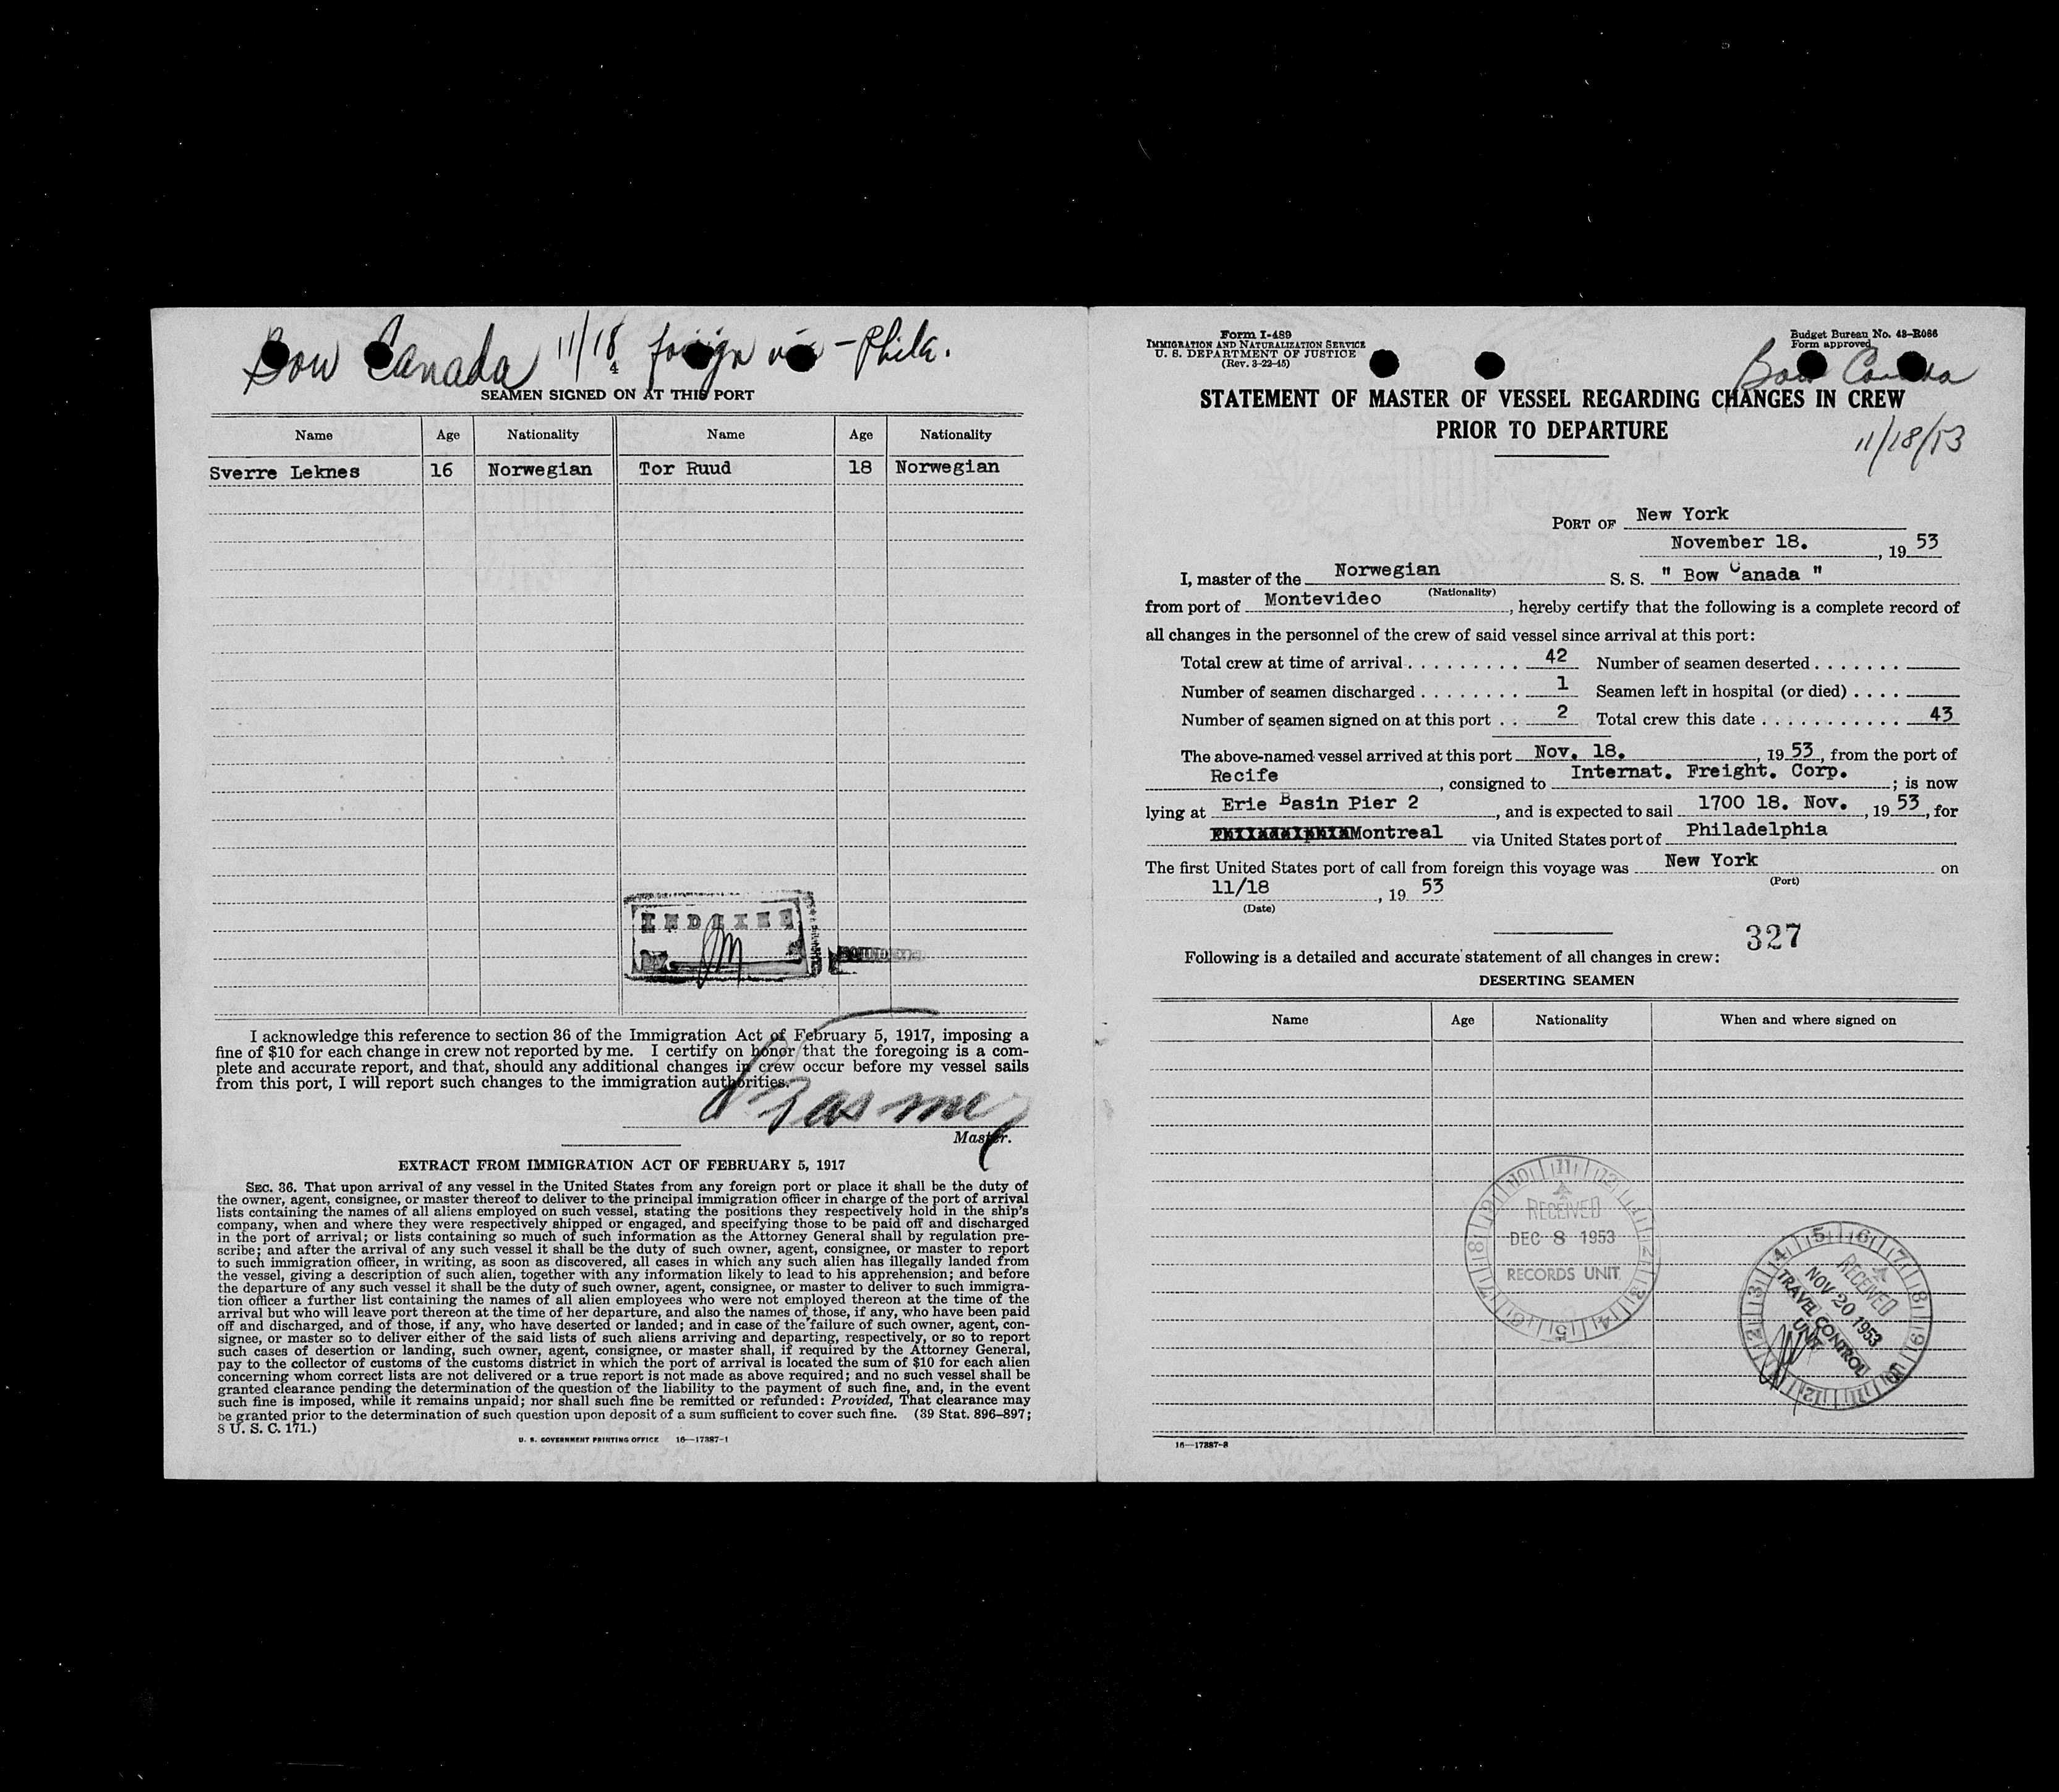 Bow Canada 11/18 foreign via - Phila.
4
SEAMEN SIGNED ON AT THIS PORT
Name Age Nationality Name Age Nationality
Sverre Leknes 16 Norwegian Tor Ruud 18 Norwegian
INDEXED
I acknowledge this reference to section 36 of the Immigration Act of February 5, 1917, imposing a
fine of $10 for each change in crew not reported by me. I certify on honor that the foregoing is a com-
plete and accurate report, and that, should any additional changes in crew occur before my vessel sails
from this port, I will report such changes to the immigration authorities.
Master.
EXTRACT FROM IMMIGRATION ACT OF FEBRUARY 5, 1917
SEC. 36. That upon arrival of any vessel in the United States from any foreign port or place it shall be the duty of
the owner, agent, consignee, or master thereof to deliver to the principal immigration officer in charge of the port of arrival
lists containing the names of all aliens employed on such vessel, stating the positions they respectively hold in the ship's
company, when and where they were respectively shipped or engaged, and specifying those to be paid off and discharged
in the port of arrival; or lists containing so much of such information as the Attorney General shall by regulation pre-
scribe; and after the arrival of any such vessel it shall be the duty of such owner, agent, consignee, or master to report
to such immigration officer, in writing, as soon as discovered, all cases in which any such alien has illegally landed from
the vessel, giving a description of such alien, together with any information likely to lead to his apprehension; and before
the departure of any such vessel it shall be the duty of such owner, agent, consignee, or master to deliver to such immigra-
tion officer a further list containing the names of all alien employees who were not employed thereon at the time of the
arrival but who will leave port thereon at the time of her departure, and also the names of those, if any, who have been paid
off and discharged, and of those, if any, who have deserted or landed; and in case of the failure of such owner, agent, con-
signee, or master so to deliver either of the said lists of such aliens arriving and departing, respectively, or so to report
such cases of desertion or landing, such owner, agent, consignee, or master shall, if required by the Attorney General,
pay to the collector of customs of the customs district in which the port of arrival is located the sum of $10 for each alien
concerning whom correct lists are not delivered or a true report is not made as above required; and no such vessel shall be
granted clearance pending the determination of the question of the liability to the payment of such fine, and, in the event
such fine is imposed, while it remains unpaid; nor shall such fine be remitted or refunded: Provided, That clearance may
be granted prior to the determination of such question upon deposit of a sum sufficient to cover such fine. (39 Stat. 896-897;
8 U. S. C. 171.)
U. S. GOVERNMENT PRINTING OFFICE 16—17387-1
Form I-489
IMMIGRATION AND NATURALIZATION SERVICE
U. S. DEPARTMENT OF JUSTICE
(Rev. 3-22-45)
Budget Bureau No. 43-R066
Form approved
Bow Canada
STATEMENT OF MASTER OF VESSEL REGARDING CHANGES IN CREW
PRIOR TO DEPARTURE
11/18/53
PORT OF New York
November 18. , 19 53
I, master of the Norwegian S. S. " Bow Canada "
(Nationality)
from port of Montevideo , hereby certify that the following is a complete record of
all changes in the personnel of the crew of said vessel since arrival at this port:
Total crew at time of arrival . . . . . . . . . 42 Number of seamen deserted . . . . . . .
Number of seamen discharged . . . . . . . . 1 Seamen left in hospital (or died) . . . .
Number of seamen signed on at this port . . 2 Total crew this date . . . . . . . . . . . 43
The above-named vessel arrived at this port Nov. 18. , 19 53 , from the port of
Recife , consigned to Internat. Freight. Corp. ; is now
lying at Erie Basin Pier 2 , and is expected to sail 1700 18. Nov. , 19 53 , for
Montreal via United States port of Philadelphia
The first United States port of call from foreign this voyage was New York on
(Port)
11/18 , 19 53
(Date)
327
Following is a detailed and accurate statement of all changes in crew:
DESERTING SEAMEN
Name Age Nationality When and where signed on
RECEIVED
DEC 8 1953
RECORDS UNIT
RECEIVED
NOV 20 1953
TRAVEL CONTROL
UNIT
16—17387-2